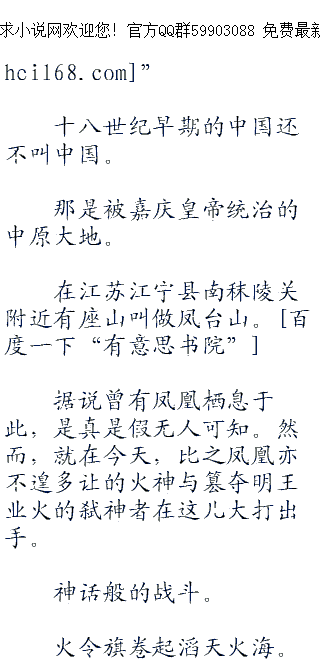 求小说网欢迎您! 官方QQ群59903088 免费最新
hci168.com]”
十八世纪早期的中国还
不叫中国。
那是被嘉庆皇帝统治的
中原大地。
在江苏江宁县南秣陵关
附近有座山叫做凤台山。[百
度一下“有意思书院”]
据说曾有凤凰栖息于
此，是真是假无人可知。然
而，就在今天，比之凤凰亦
不遑多让的火神与篡夺明王
业火的弑神者在这儿大打出
手。
神话般的战斗。
火令旗卷起滔天火海。